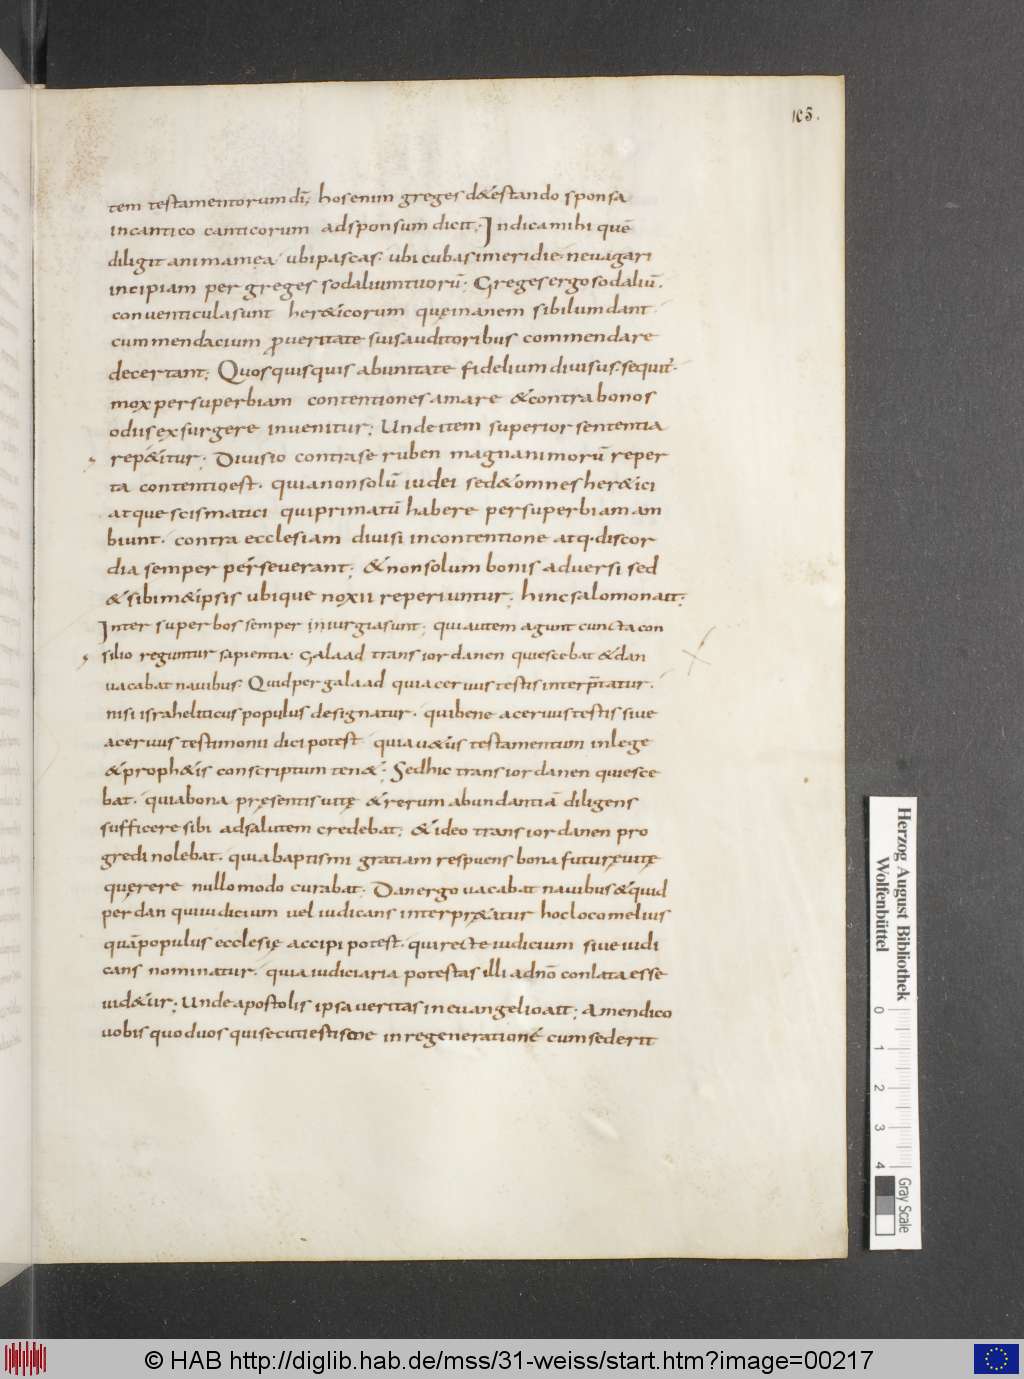 105.
tem testamentorum dī; hos enim greges d&estando sponsa
in cantico canticorum ad sponsum dicit; Indica mihi quē
diligit anima mea ubi pascas. ubi cubas in meridie. ne vagari
incipiam per greges sodalium tuorū; Greges ergo sodaliū.
conventicula sunt her&icorum quę inanem sibilum dant
cum mendacium p veritate suis auditoribus commendare
decertant; Quos quisquis ab unitate fidelium divisus sequit̄.
mox per superbiam contentiones amare & contra bonos
odiis exsurgere invenitur; Unde item superior sententia
rep&itur; Divisio contra se ruben magnanimorū reper
ta contentio est. quia non solū iudei sed & omnes her&ici
atque scismatici qui primatū habere per superbiam am
biunt. contra ecclesiam divisi in contentione atq. discor
dia semper perseverant; & non solum bonis adversi sed
& sibim& ipsis ubique noxii reperiuntur; hinc salomon ait;
Inter superbos semper iniurgia sunt; qui autem agunt cuncta con
silio reguntur sapientia. Galaad trans iordanen quiescebat & dan
vacabat navibus. Quid per galaad qui acervus testis interp̄tatur.
nisi israheliticus populus designatur. qui bene acervus testis sive
acervus testimonii dici potest quia v&us testamentum in lege
& proph&is conscriptum ten&; Sed hic trans iordanen quiesce
bat. quia bona pręsentis vitę & rerum abundantiā diligens
sufficere sibi ad salutem credebat; & ideo trans iordanen pro
gredi nolebat. quia baptismi gratiam respuens bona futurę vitę
quęrere nullo modo curabat. Dan ergo vacabat navibus & quid
per dan qui iudicium vel iudicans interpr&atur hoc loco melius
quā populus ecclesię accipi potest. qui recte iudicium sive iudi
cans nominatur. quia iudiciaria potestas illi a dnō conlata esse
vid&ur; Unde apostolis ipsa veritas in euangelio ait; Amen dico
vobis quod vos qui secuti estis me in regeneratione cum sederit
Herzog August Bibliothek
Wolfenbüttel
0 1 2 3 4
Gray Scale
© HAB http://diglib.hab.de/mss/31-weiss/start.htm?image=00217